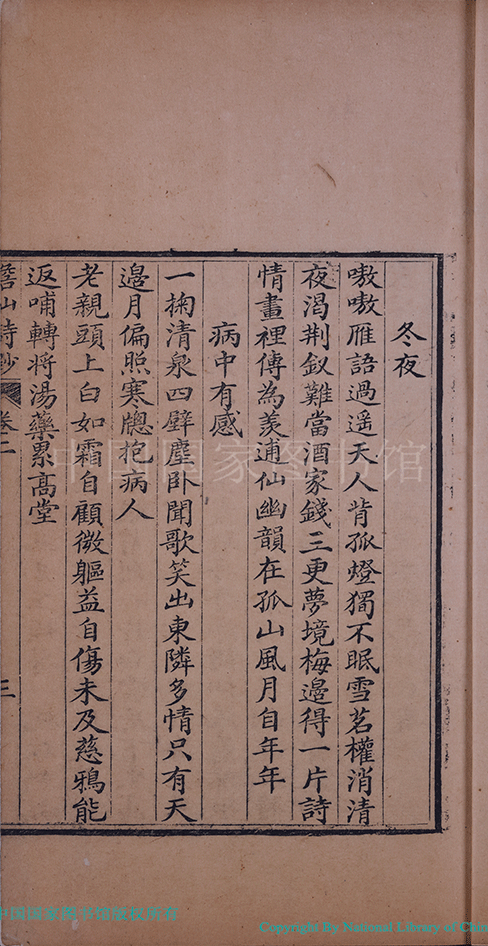 冬夜
嗷嗷雁語過遥天人背孤燈獨不眠雪茗權消清
夜渴荆釵難當酒家錢三更夢境梅邉得一片詩
情畫裡傳為羨逋仙幽韻在孤山風月自年年
病中有感
一掬清泉四壁塵卧聞歌笑出東隣多情只有天
邉月偏照寒牕抱病人
老親頭上白如霜自顧微軀益自傷未及慈鴉能
返哺轉將湯藥累髙堂
山詩鈔 卷二 三
中国国家图书馆
中国国家图书馆版权所有
Copyright By National Library of Chin